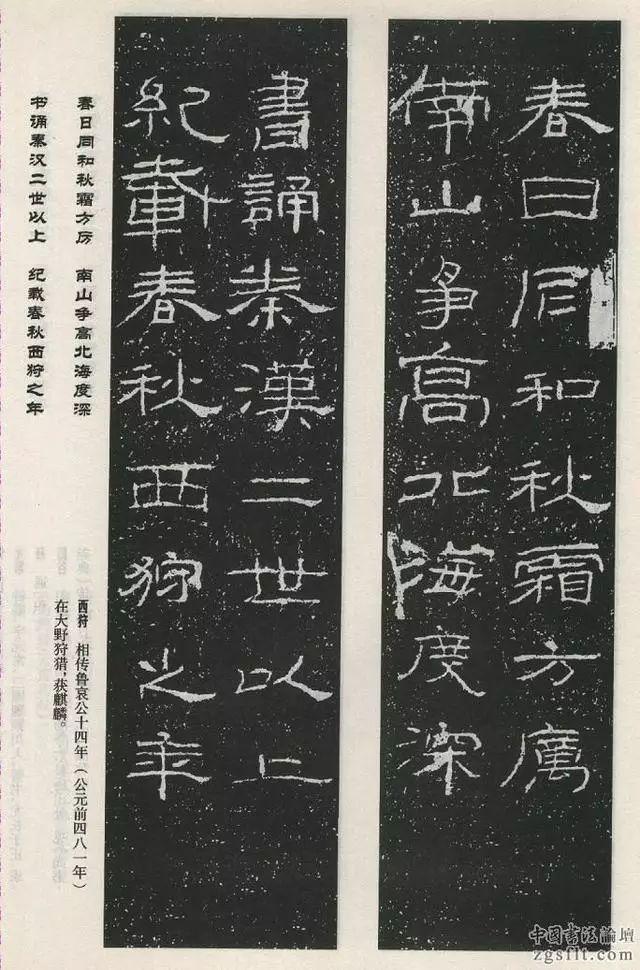 春日同和秋霜方厲
南山爭高北海度深
書誦秦漢二世以上
紀載春秋西狩之年
春日同和秋霜方厉　南山争高北海度深
书诵秦汉二世以上　纪载春秋西狩之年
西狩　相传鲁哀公十四年（公元前四八一年）
在大野狩猎，获麒麟。
中国书法論壇
zgsflt.com